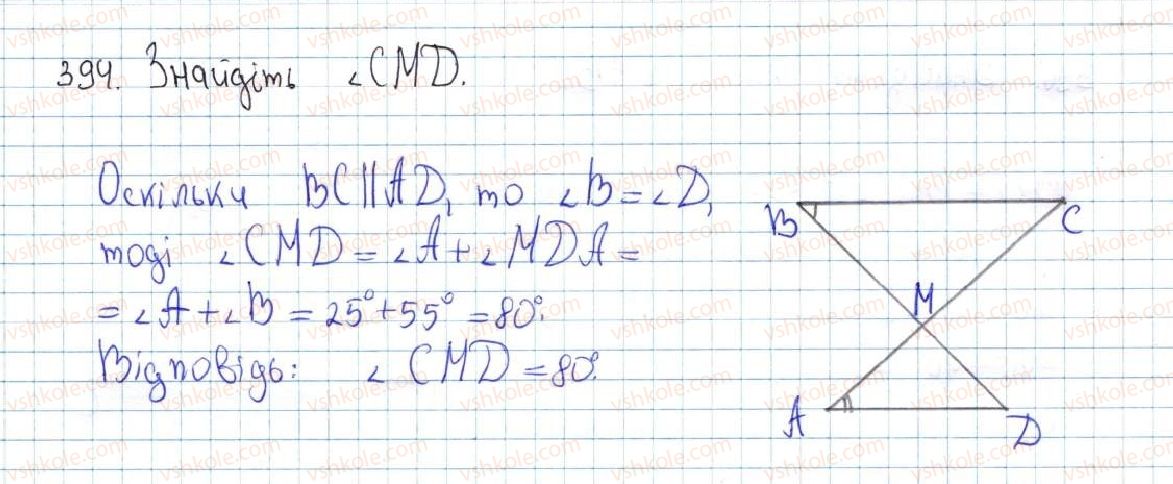 394. Знайдіть ∠CMD.
Оскільки BC||AD, то ∠B=∠D,
тоді ∠CMD=∠A+∠MDA=
=∠A+∠B=25°+55°=80°.
Відповідь: ∠CMD=80°.
B
C
M
A
D